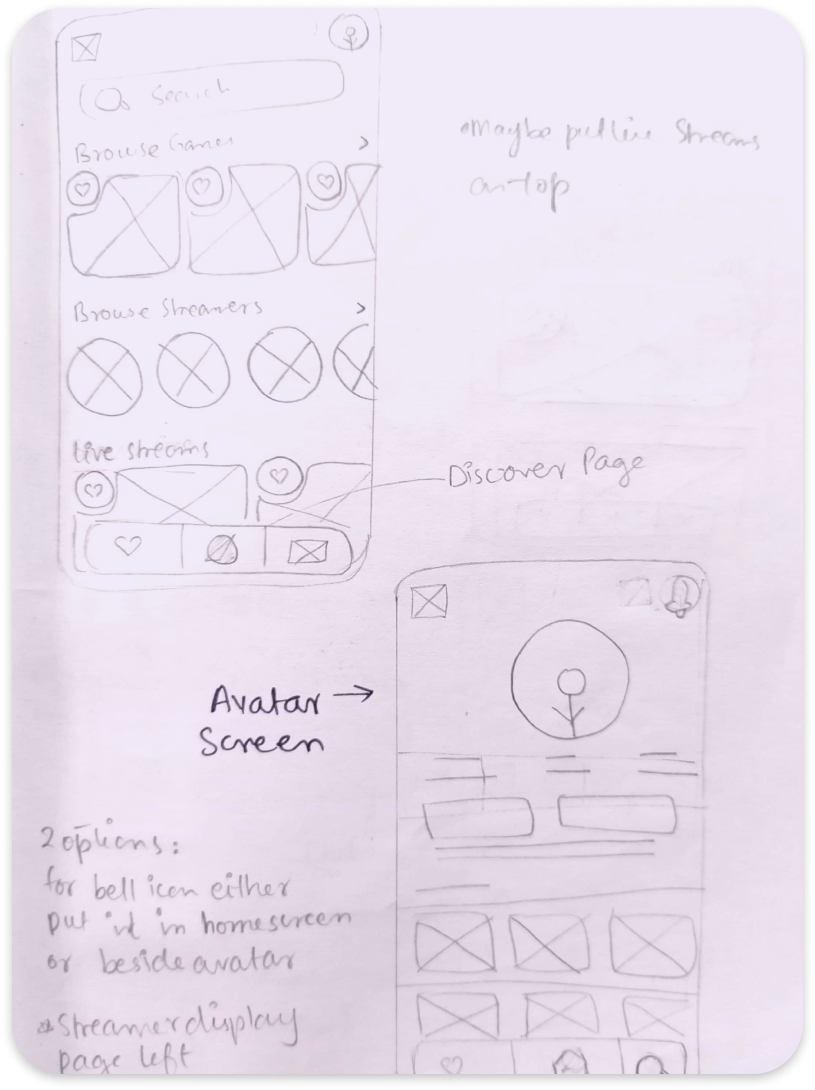 Search
Browse Games >
Browse Streamers >
Live streams
•Maybe put live Streams
on top
Discover Page
Avatar →
Screen
2 options:
for bell icon either
put it in homescreen
or beside avatar
Streamer display
page left